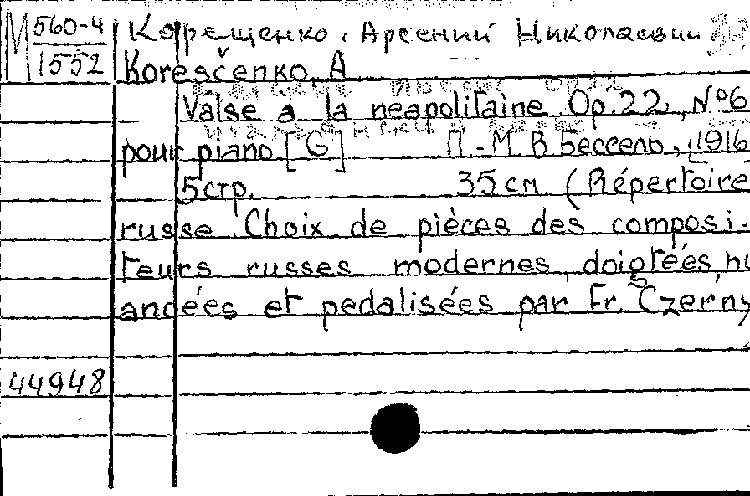 М 560-4 Корещенко, Арсений Николаевич
1552 Koresčenko, A
Valse a la neapolitaine Op. 22, №6
pour piano [G] П.-М. В Бессель, 1916
5 стр. 35 см (Répertoire
russe Choix de pièces des composi-
teurs russes modernes doigtées, nu
ancées et pedalisées par Fr. Czerny
44948